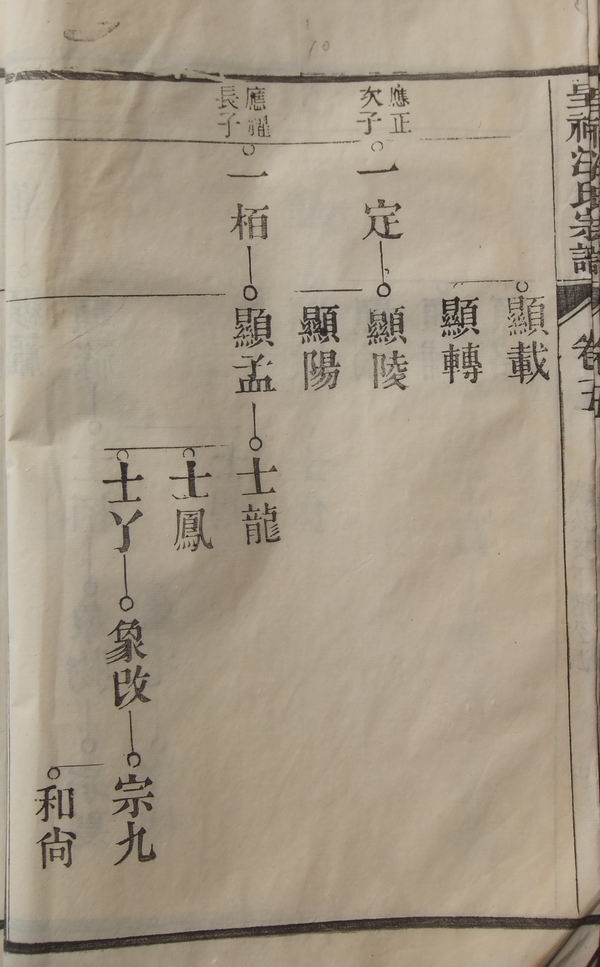 宗譜
卷五
顯載
顯轉
應正
次子
一定
顯陵
顯陽
應耀
長子
一栢
顯孟
士龍
士鳳
士丫
象改
宗九
和尙